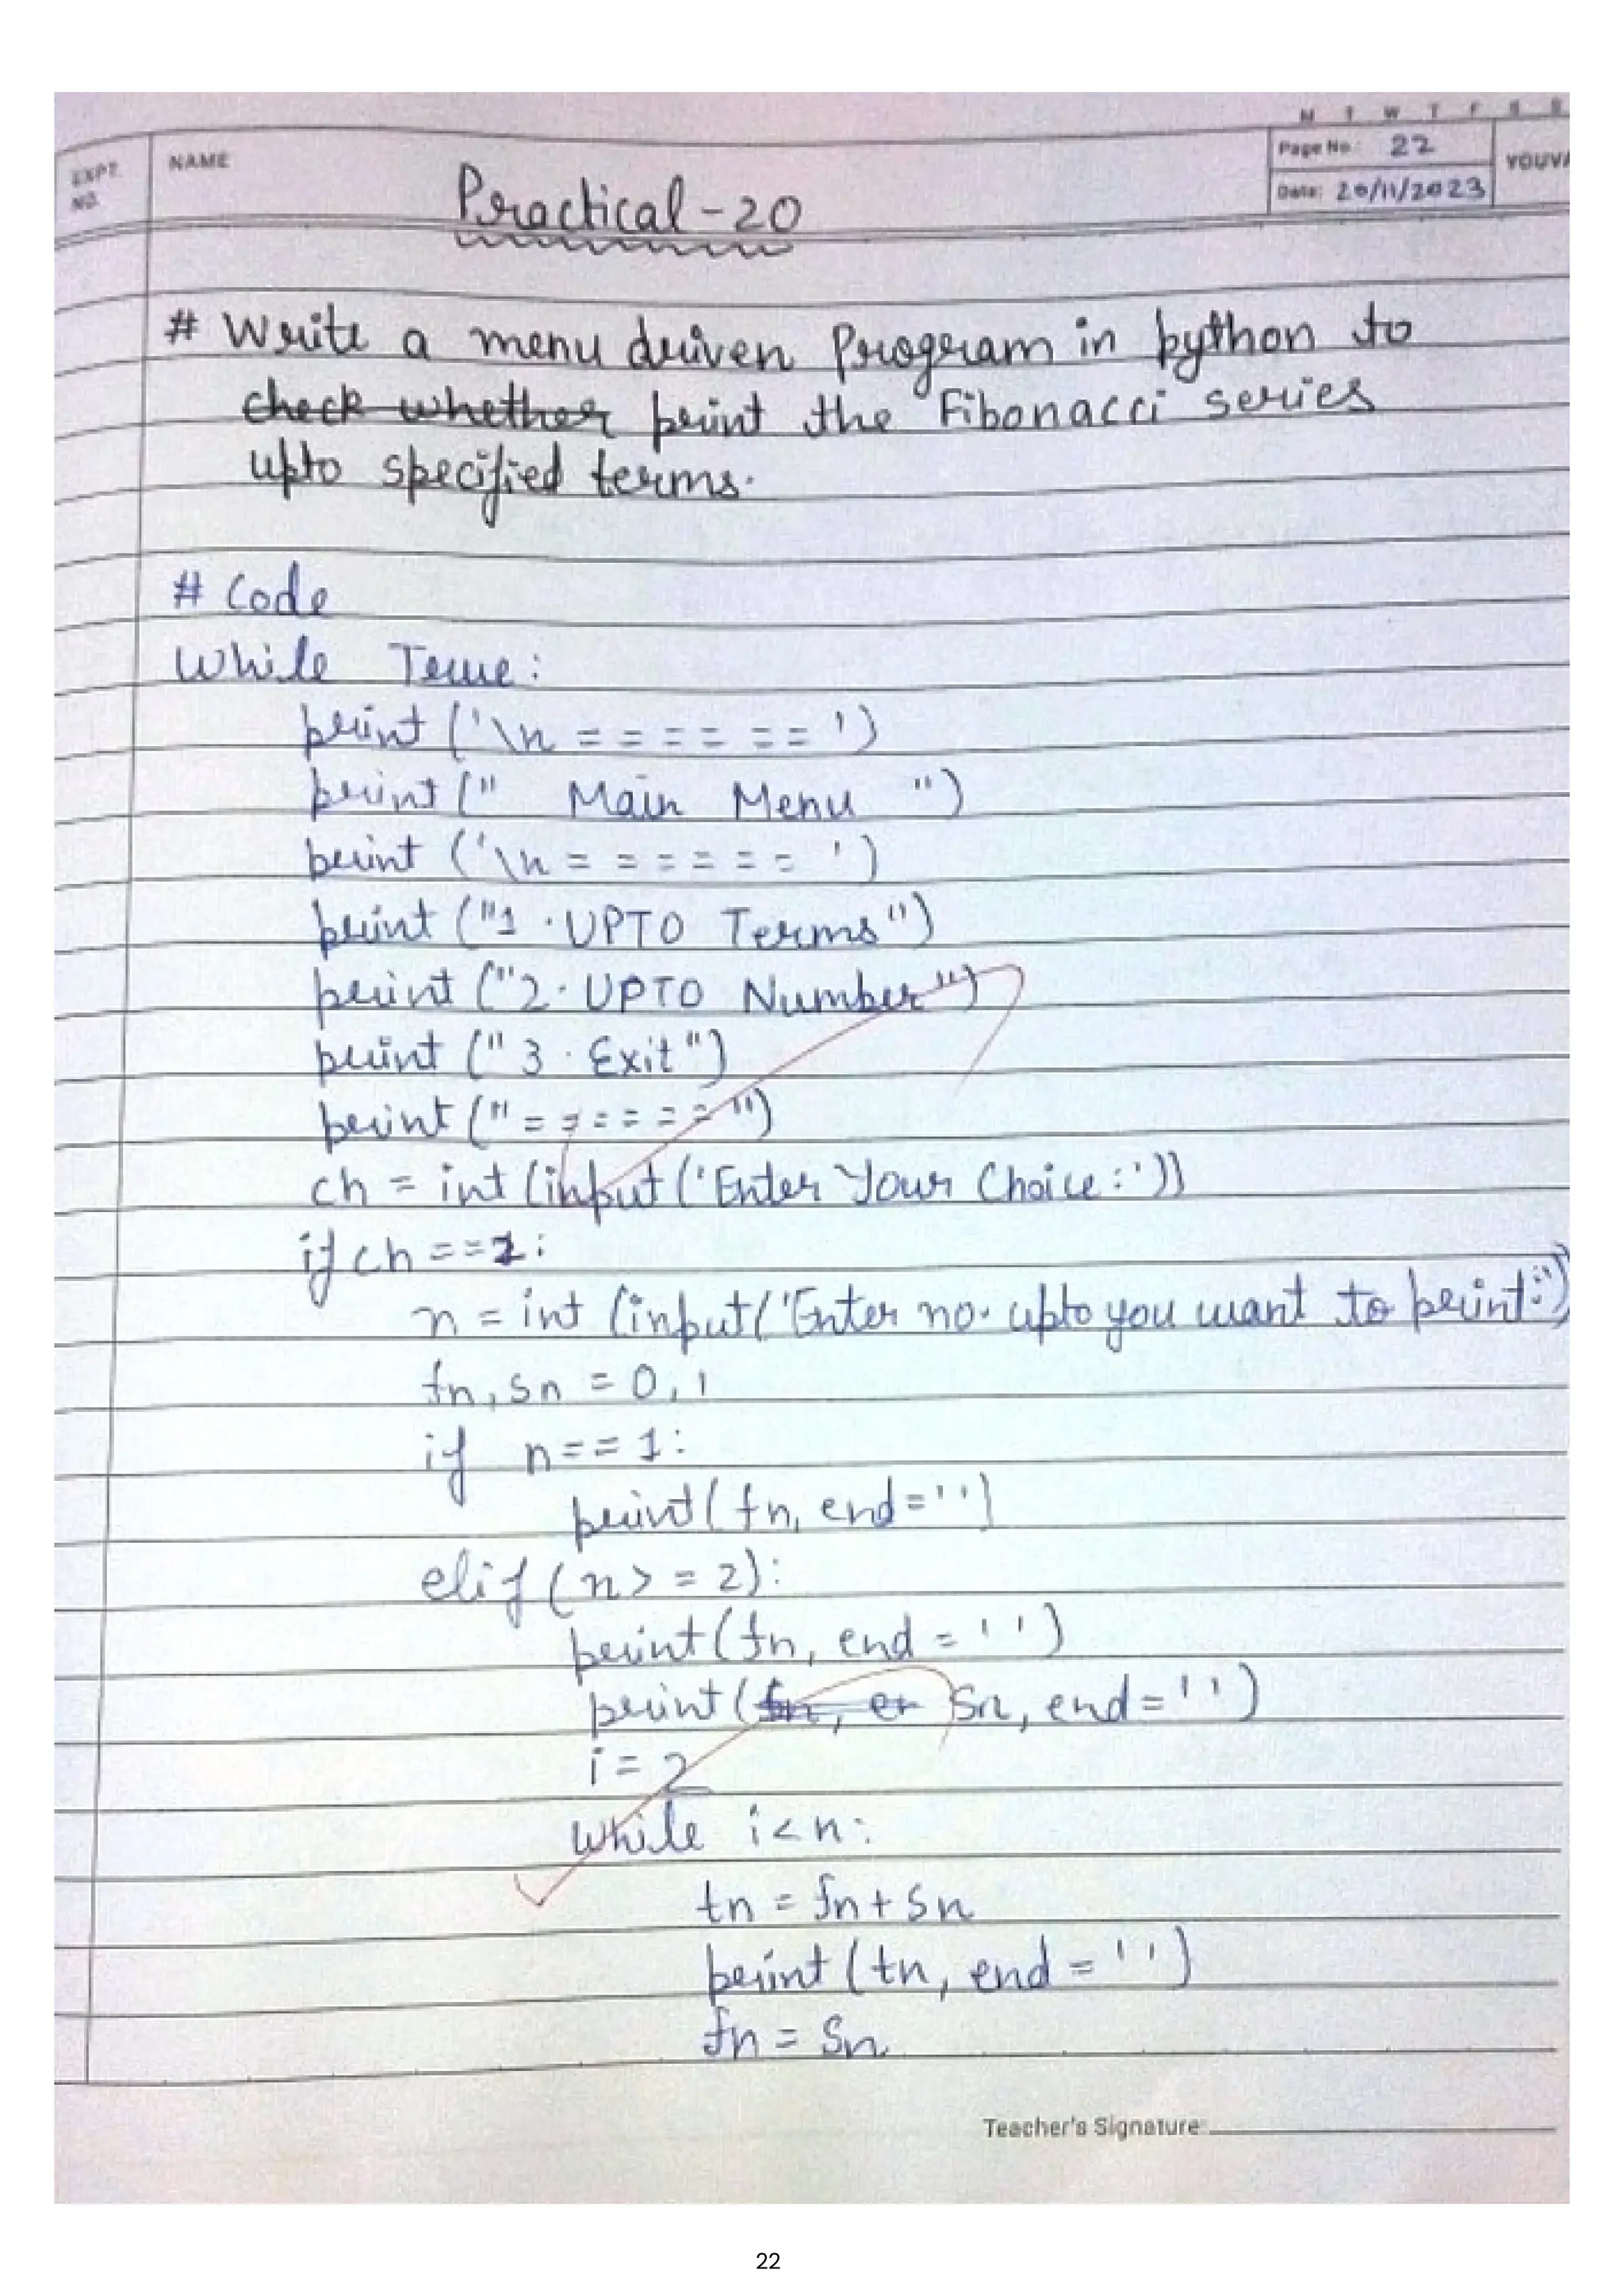 M T W T F S S
EXPT. NO. NAME Page No.: 22 YOUVA
Date: 20/11/2023
Practical-20
# Write a menu driven Program in python to
check whether print the Fibonacci series
upto specified terms.
# Code
While True:
print ('\n = = = = = = ')
print (" Main Menu ")
print ('\n = = = = = = ')
print ("1 . UPTO Terms")
print ("2. UPTO Number")
print (" 3 . Exit")
print (" = = = = = = ")
ch = int (input ('Enter Your Choice :'))
if ch ==1:
n = int (input('Enter no. upto you want to print:'))
fn, sn = 0, 1
if n == 1:
print( fn, end=' ')
elif (n> = 2):
print (fn, end = ' ')
print (fn, en sn, end= ' ')
i = 2
while i < n:
tn = fn + sn
print (tn, end = ' ')
fn = sn
Teacher's Signature:
22